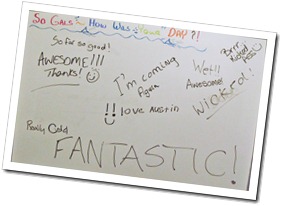 So Gals~ How Was Your DAY?!
So far so good!
AWESOME!!!
Thanks!
I'm coming
Again
!! love Austin
Wet!!
Awesome!
Wicked!
Brrr
Kicked
Really Cold
FANTASTIC!